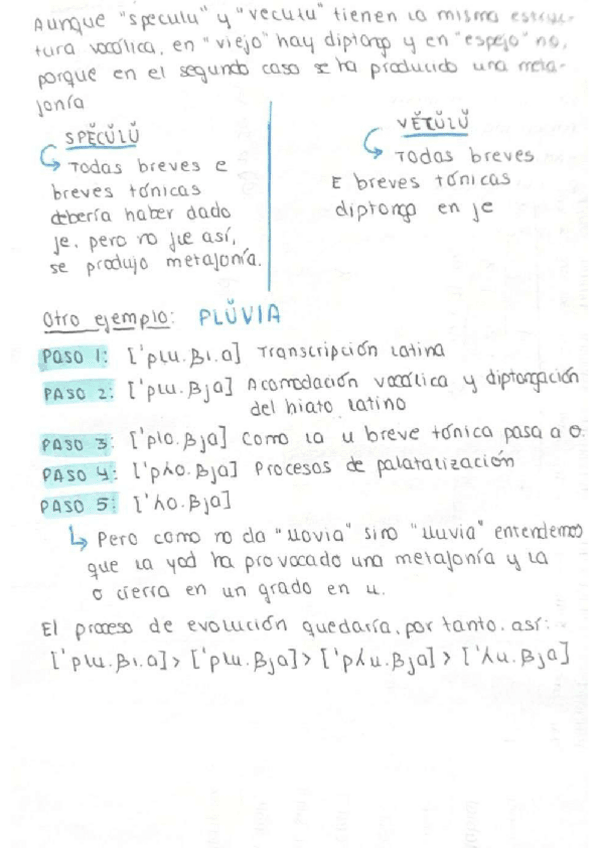 Aunque "speculu" y "veculu" tienen la misma estruc-
tura vocólica, en "viejo" hay diptongo y en "espejo" no,
porque en el segundo caso se ha producido una meta-
fonía
SPĔCŬLŬ
Todas breves e
breves tónicas
debería haber dado
je, pero no fue así,
se produjo metafonía.
VĔTŬLŬ
Todas breves
E breves tónicas
diptongo en je
Otro ejemplo: PLŬVIA
PASO 1: ['plu.βi.a] Transcripción latina
PASO 2: ['plu.βja] Acomodación vocólica y diptongación
del hiato latino
PASO 3: ['plo.βja] Como la u breve tónica pasa a o.
PASO 4: ['pʎo.βja] Procesos de palatalización
PASO 5: ['ʎo.βja]
Pero como no da "llovia" sino "lluvia" entendemos
que la yod ha provocado una metafonía y la
o cierra en un grado en u.
El proceso de evolución quedaría, por tanto, así:
['plu.βi.a] > ['plu.βja] > ['pʎu.βja] > ['ʎu.βja]